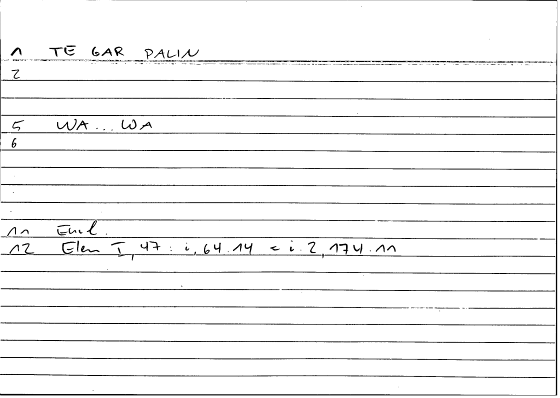 1 TE GAR PALIN
2
5 WA... WA
6
11 Eucl.
12 Elem I, 47 : i, 64.14 = i.2, 174.11